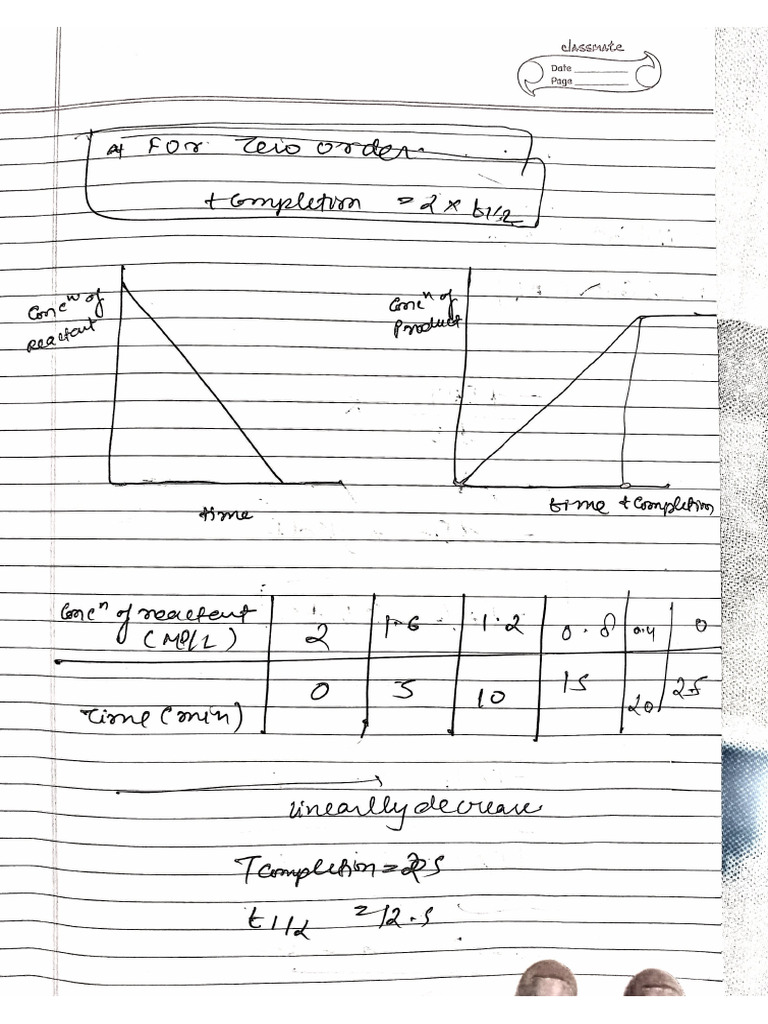 classmate
Date
Page
* For Zero order
t completion = 2 × t1/2
Concⁿ of
reactant
Concⁿ of
Product
time
time t completion
Concⁿ of reactant 2 1.6 1.2 0.8 0.4 0
(M01/L)
Time (min) 0 5 10 15 20 25
linearlly decrease
T completion = 25
t1/2 = 12.5